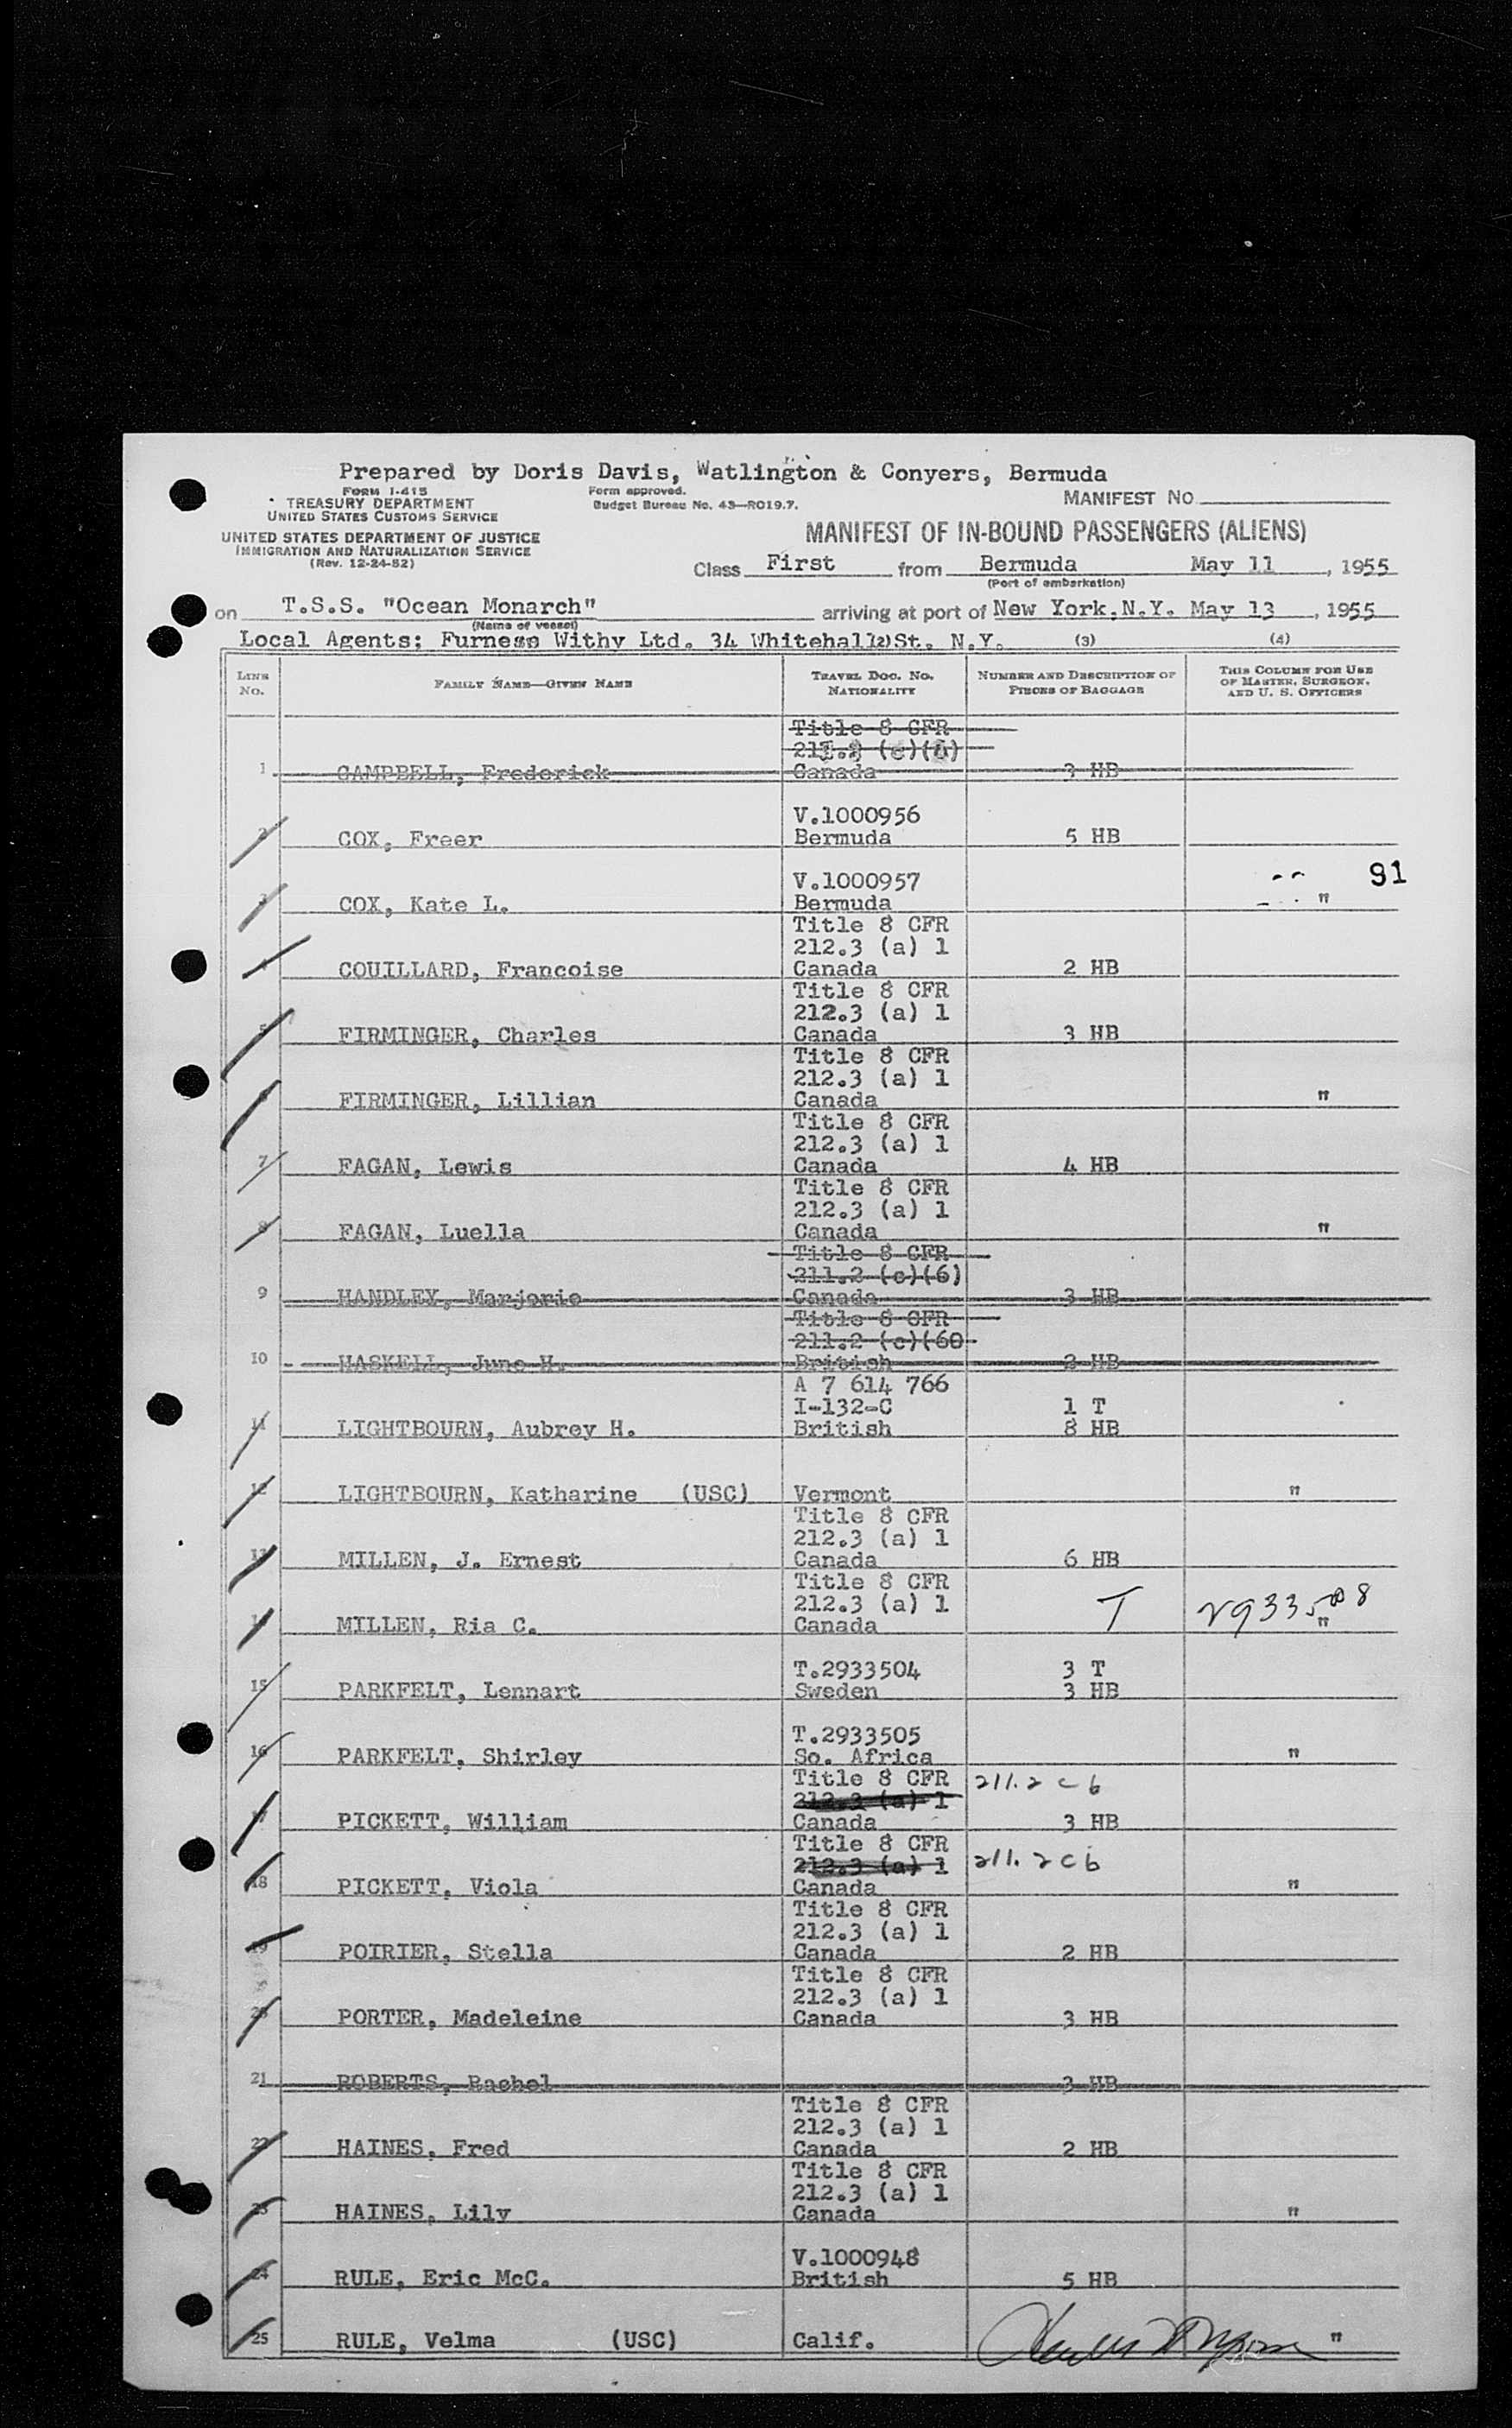 Prepared by Doris Davis, Watlington & Conyers, Bermuda
FORM I-415
TREASURY DEPARTMENT
UNITED STATES CUSTOMS SERVICE
UNITED STATES DEPARTMENT OF JUSTICE
IMMIGRATION AND NATURALIZATION SERVICE
(Rev. 12-24-52)
Form approved.
Budget Bureau No. 43—RO19.7.
MANIFEST NO
MANIFEST OF IN-BOUND PASSENGERS (ALIENS)
Class First from Bermuda May 11, 1955
(Port of embarkation)
on T.S.S. "Ocean Monarch" arriving at port of New York, N.Y. May 13, 1955
(Name of vessel)
Local Agents: Furness Withy Ltd. 34 Whitehall St. N.Y. (2) (3) (4)
LINE No. FAMILY NAME—GIVEN NAME TRAVEL DOC. NO. NATIONALITY NUMBER AND DESCRIPTION OF PIECES OF BAGGAGE THIS COLUMN FOR USE OF MASTER, SURGEON, AND U. S. OFFICERS
Title 8 CFR
1 CAMPBELL, Frederick Canada 3 HB
V.1000956
2 COX, Freer Bermuda 5 HB
V.1000957 91
3 COX, Kate L. Bermuda "
Title 8 CFR
212.3 (a) 1
4 COUILLARD, Francoise Canada 2 HB
Title 8 CFR
212.3 (a) 1
5 FIRMINGER, Charles Canada 3 HB
Title 8 CFR
212.3 (a) 1
6 FIRMINGER, Lillian Canada "
Title 8 CFR
212.3 (a) 1
7 FAGAN, Lewis Canada 4 HB
Title 8 CFR
212.3 (a) 1
8 FAGAN, Luella Canada "
Title 8 CFR
211.2 (c)(6)
9 HANDLEY, Marjorie Canada 3 HB
Title 8 CFR
211.2 (c)(60
10 HASKELL, June H. British 2 HB
A 7 614 766
I-132-C 1 T
11 LIGHTBOURN, Aubrey H. British 8 HB
12 LIGHTBOURN, Katharine (USC) Vermont "
Title 8 CFR
212.3 (a) 1
13 MILLEN, J. Ernest Canada 6 HB
Title 8 CFR
212.3 (a) 1 T
14 MILLEN, Ria C. Canada "
T.2933504 3 T
15 PARKFELT, Lennart Sweden 3 HB
T.2933505
16 PARKFELT, Shirley So. Africa "
Title 8 CFR 211.2 c 6
212.3 (a) 1
17 PICKETT, William Canada 3 HB
Title 8 CFR
212.3 (a) 1 211.2 c 6
18 PICKETT, Viola Canada "
Title 8 CFR
212.3 (a) 1
19 POIRIER, Stella Canada 2 HB
Title 8 CFR
212.3 (a) 1
20 PORTER, Madeleine Canada 3 HB
21 ROBERTS, Rachel 3 HB
Title 8 CFR
212.3 (a) 1
22 HAINES, Fred Canada 2 HB
Title 8 CFR
212.3 (a) 1
23 HAINES, Lily Canada "
V.1000948
24 RULE, Eric McC. British 5 HB
25 RULE, Velma (USC) Calif. "